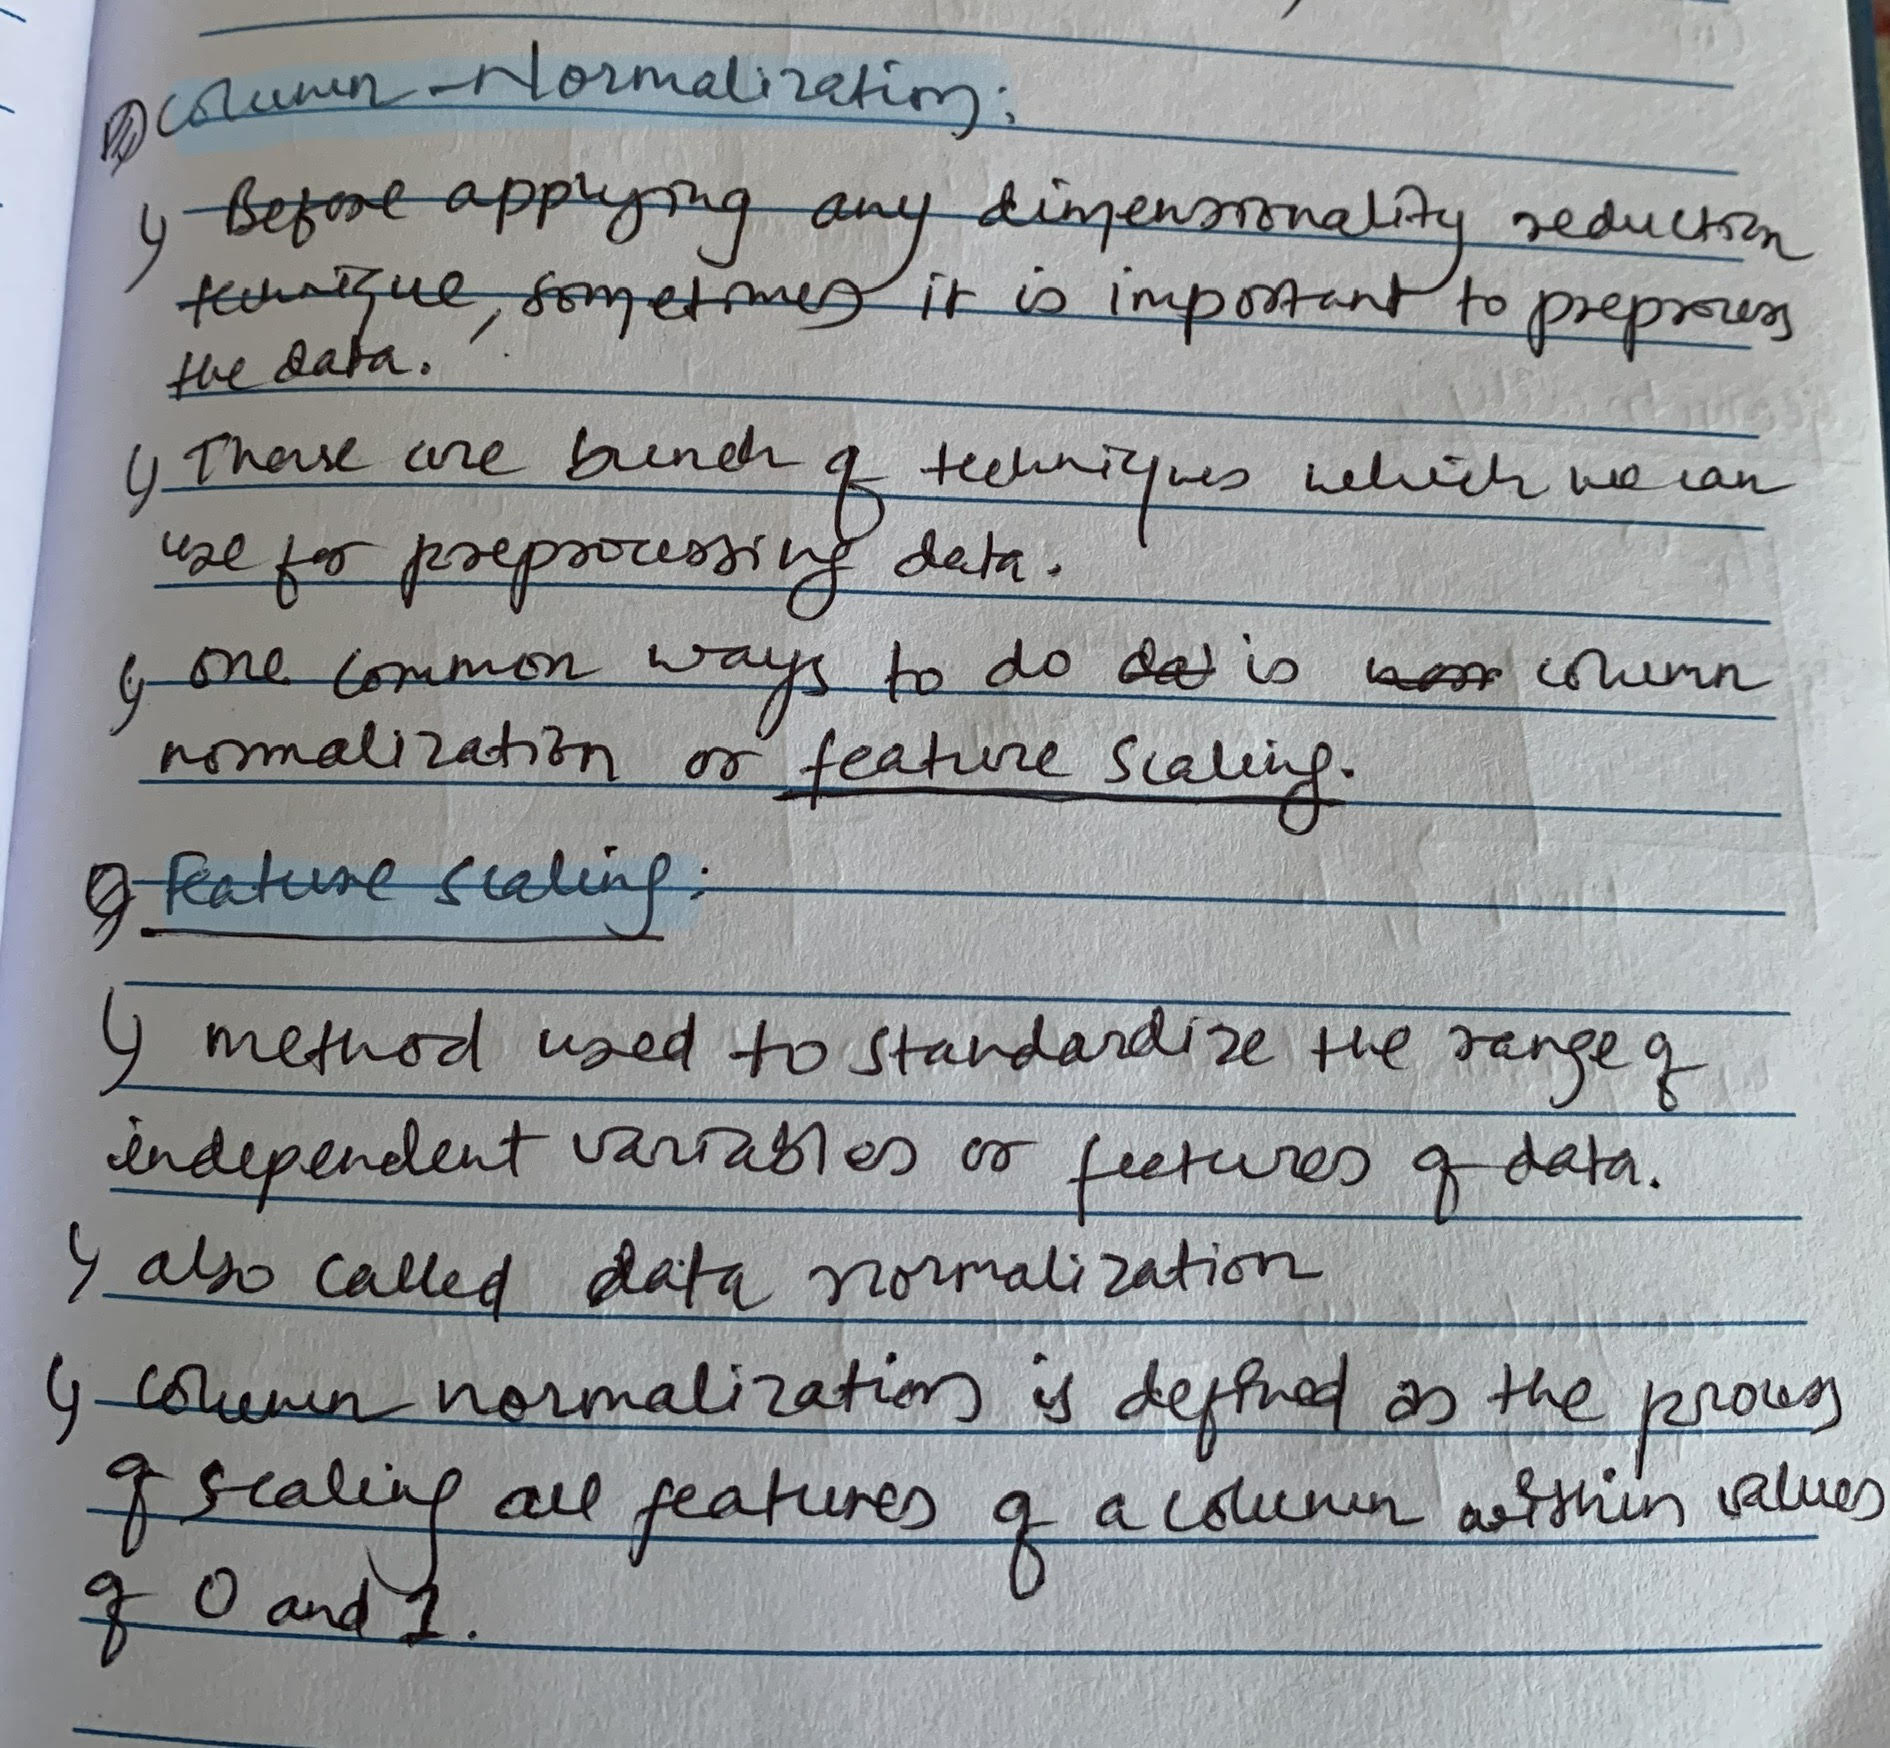 Column-Normalization:
Before applying any dimensionality reduction
technique, sometimes it is important to preprocess
the data.
These are bunch of techniques which we can
use for preprocessing data.
one common ways to do is column
normalization or feature scaling.
Feature scaling:
method used to standardize the range of
independent variables or features of data.
also called data normalization
column normalization is defined as the process
of scaling all features of a column within values
of 0 and 1.